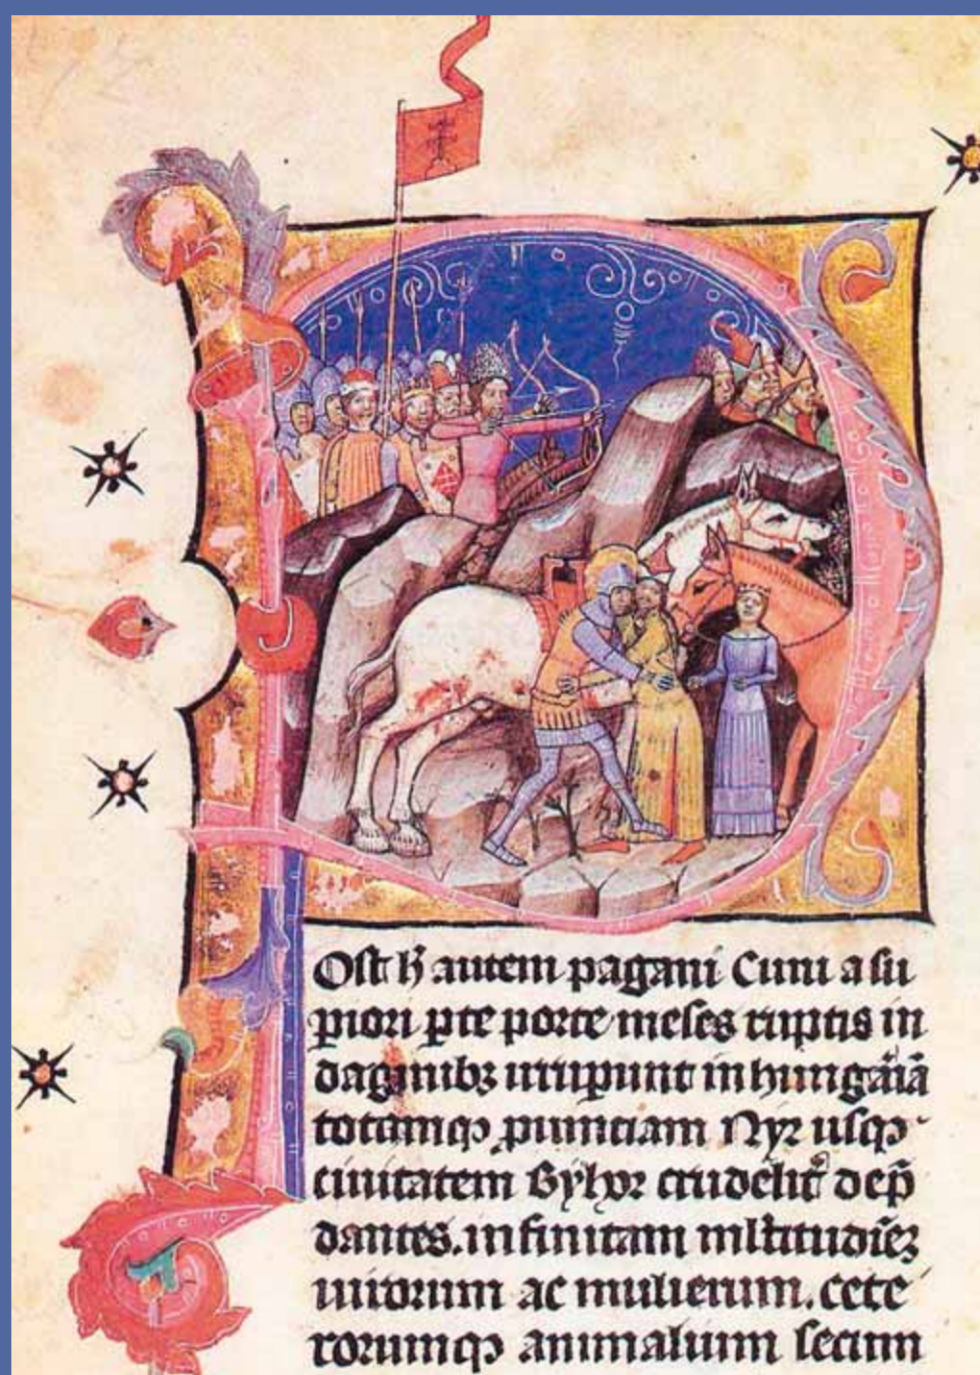 Ost h̄ autem pagani Cuni a su
ꝑiori ꝑte porte meses ruptis in
daginibꝫ irruꝑunt in hungāiā
totamqꝫ ꝓuinciam Nyr usqꝫ
ciuitatem Byhor crudelit̄ dep̄
dantes. infinitam mltitudīeꝫ
uirorum ac mulierum. cete
rorumqꝫ animalium secum